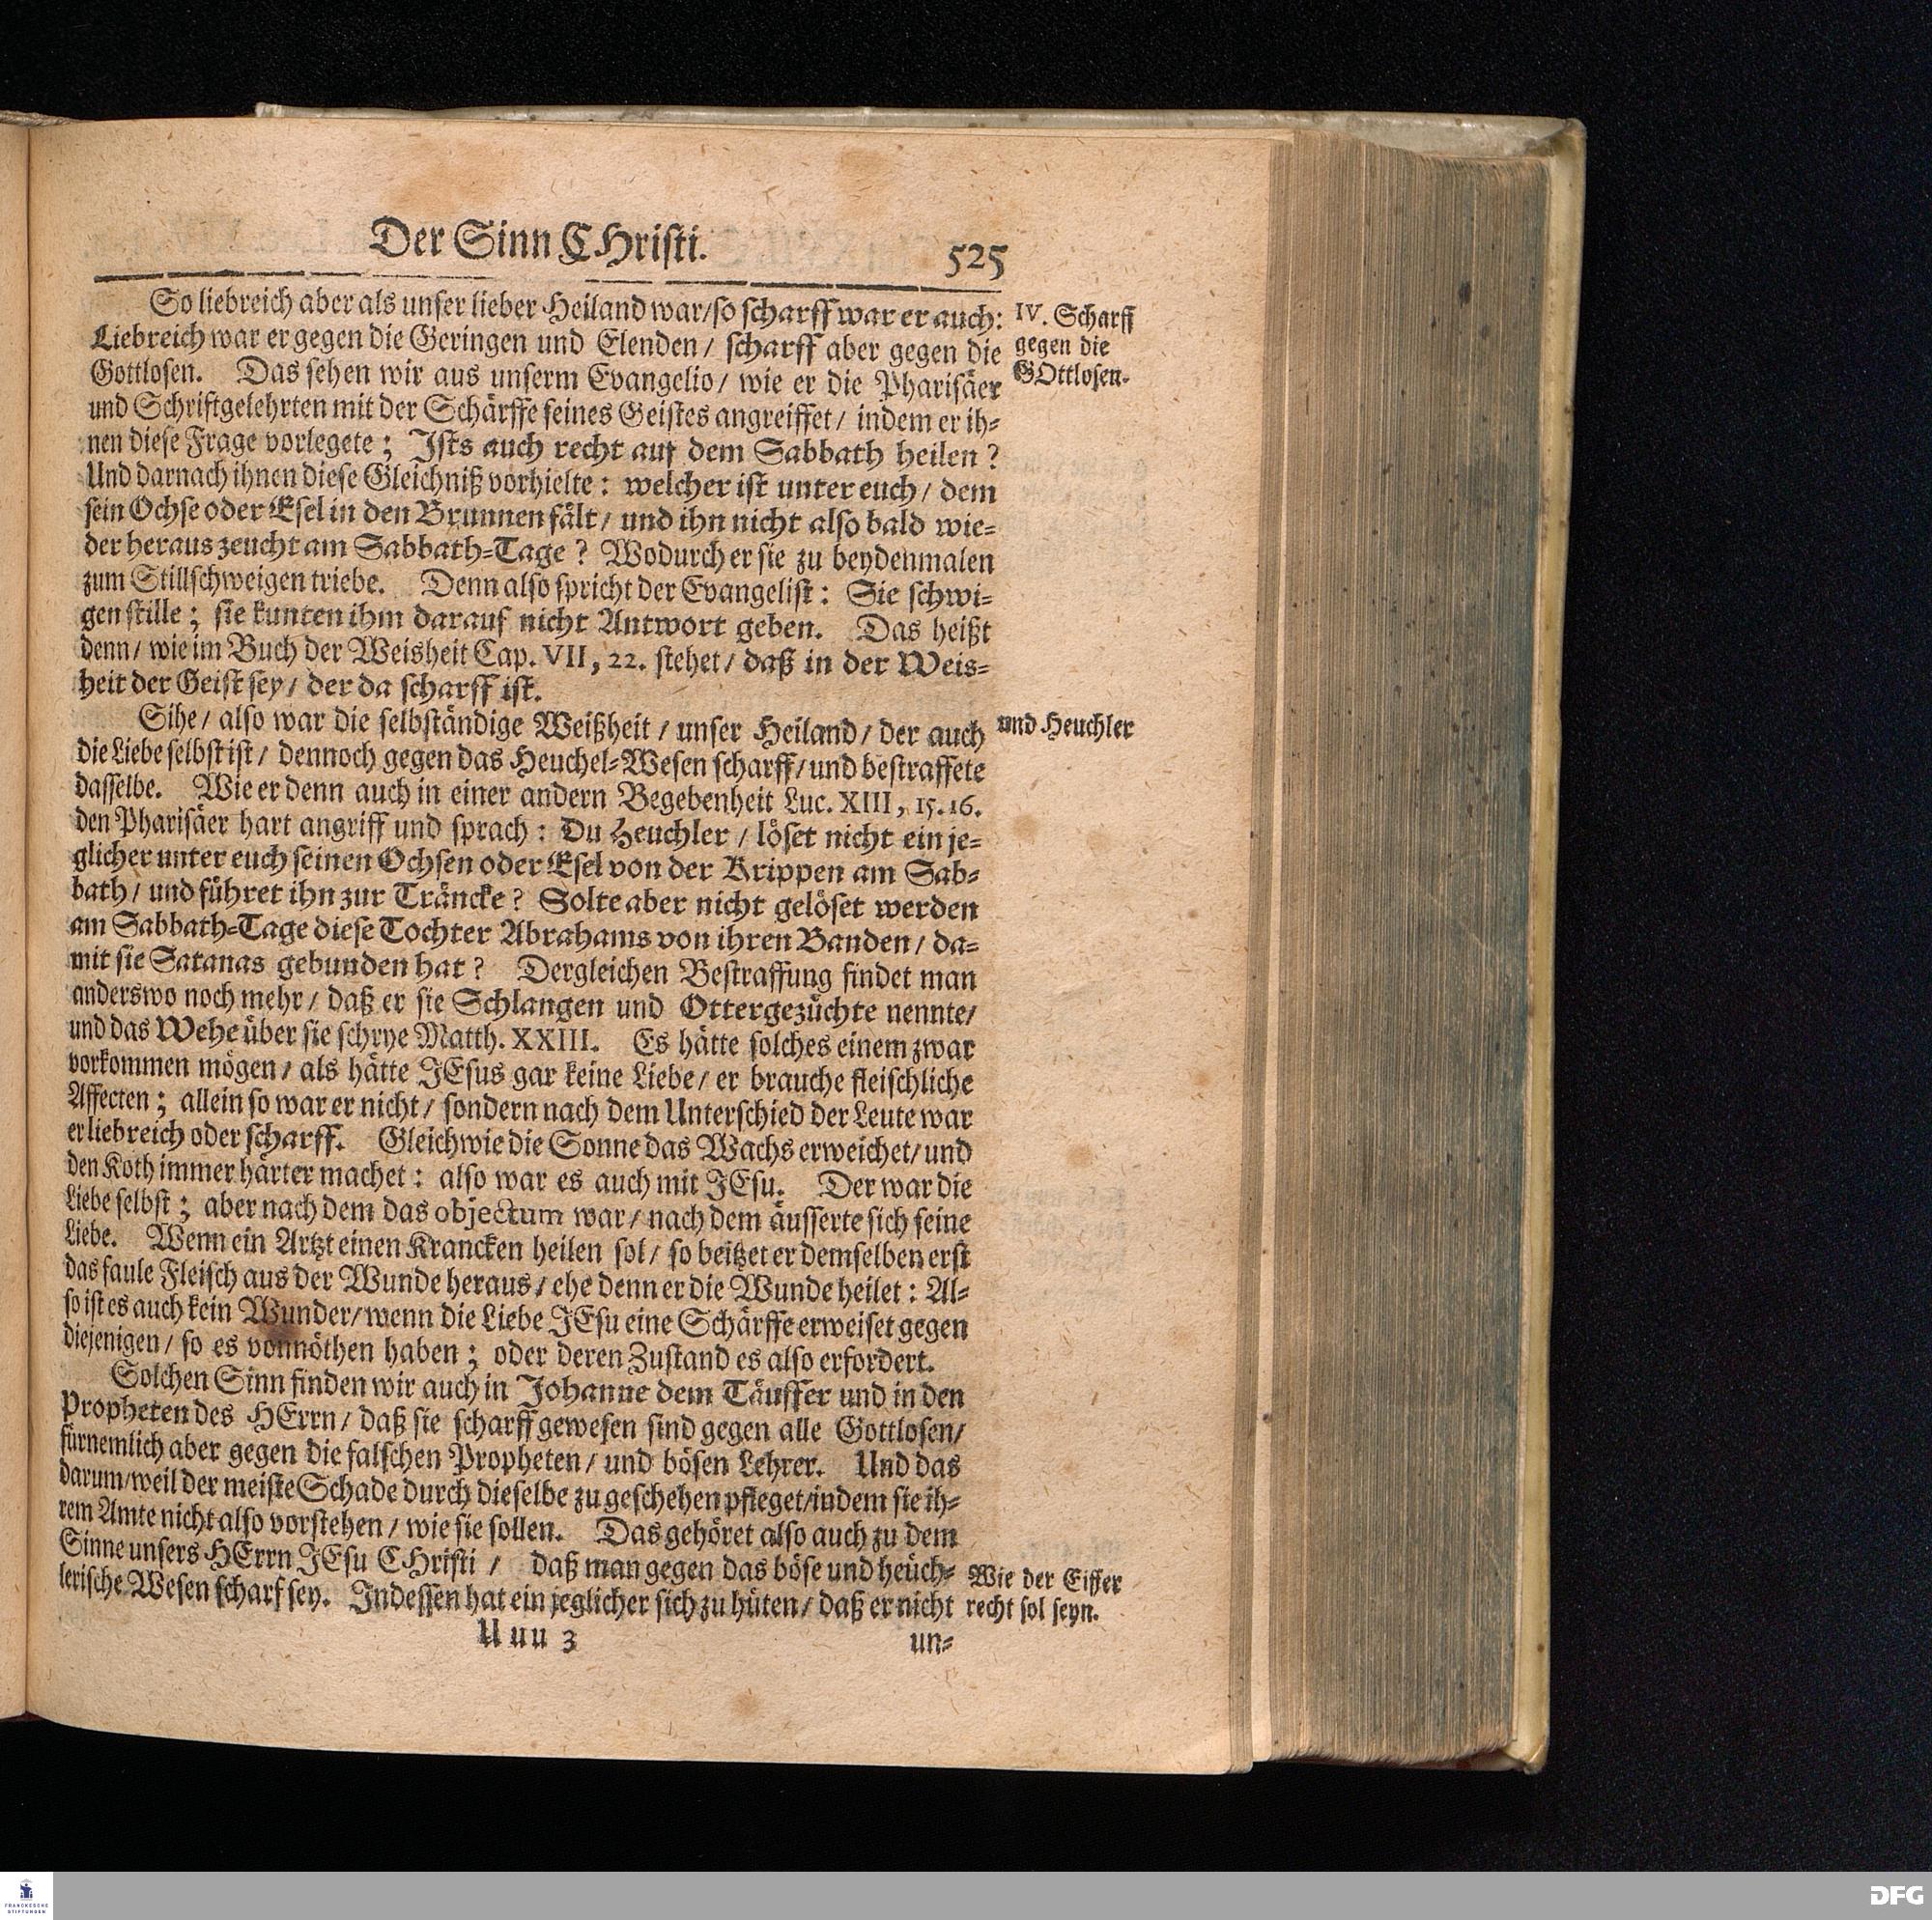 Der Sinn CHristi.
525
So liebreich aber als unser lieber Heiland war/so scharff war er auch:
Liebreich war er gegen die Geringen und Elenden/ scharff aber gegen die
Gottlosen. Das sehen wir aus unserm Evangelio/ wie er die Pharisäer
und Schriftgelehrten mit der Schärffe seines Geistes angreiffet/ indem er ih-
nen diese Frage vorlegete; Ists auch recht auf dem Sabbath heilen?
Und darnach ihnen diese Gleichniß vorhielte: welcher ist unter euch/ dem
sein Ochse oder Esel in den Brunnen fält/ und ihn nicht also bald wie-
der heraus zeucht am Sabbath-Tage? Wodurch er sie zu beydenmalen
zum Stillschweigen triebe. Denn also spricht der Evangelist: Sie schwi-
gen stille; sie kunten ihm darauf nicht Antwort geben. Das heißt
denn/ wie im Buch der Weisheit Cap. VII, 22. stehet/ daß in der Weis-
heit der Geist sey/ der da scharff ist.
IV. Scharff
gegen die
GOttlosen.
Sihe/ also war die selbständige Weißheit/ unser Heiland/ der auch
die Liebe selbst ist/ dennoch gegen das Heuchel-Wesen scharff/und bestraffete
dasselbe. Wie er denn auch in einer andern Begebenheit Luc. XIII, 15.16.
den Pharisäer hart angriff und sprach: Du Heuchler/ löset nicht ein je-
glicher unter euch seinen Ochsen oder Esel von der Krippen am Sab-
bath/ und führet ihn zur Träncke? Solte aber nicht gelöset werden
am Sabbath-Tage diese Tochter Abrahams von ihren Banden/ da-
mit sie Satanas gebunden hat? Dergleichen Bestraffung findet man
anderswo noch mehr/ daß er sie Schlangen und Ottergezüchte nennte/
und das Wehe über sie schrye Matth. XXIII. Es hätte solches einem zwar
vorkommen mögen/ als hätte JEsus gar keine Liebe/ er brauche fleischliche
Affecten; allein so war er nicht/ sondern nach dem Unterschied der Leute war
er liebreich oder scharff. Gleichwie die Sonne das Wachs erweichet/ und
den Koth immer härter machet: also war es auch mit JEsu. Der war die
Liebe selbst; aber nach dem das objectum war/ nach dem äusserte sich seine
Liebe. Wenn ein Artzt einen Krancken heilen sol/ so beitzet er demselben erst
das faule Fleisch aus der Wunde heraus/ ehe denn er die Wunde heilet: Al-
so ist es auch kein Wunder/ wenn die Liebe JEsu eine Schärffe erweiset gegen
diejenigen/ so es vonnöthen haben; oder deren Zustand es also erfordert.
und Heuchler
Solchen Sinn finden wir auch in Johanne dem Täuffer und in den
Propheten des HErrn/ daß sie scharff gewesen sind gegen alle Gottlosen/
fürnemlich aber gegen die falschen Propheten/ und bösen Lehrer. Und das
darum/weil der meiste Schade durch dieselbe zu geschehen pfleget/indem sie ih-
rem Amte nicht also vorstehen/ wie sie sollen. Das gehöret also auch zu dem
Sinne unsers HErrn JEsu CHristi/ daß man gegen das böse und heuch-
lerische Wesen scharf sey. Indessen hat ein jeglicher sich zu hüten/ daß er nicht
Wie der Eiffer
recht sol seyn.
Uuu 3
un-
FRANCKESCHE
STIFTUNGEN
DFG